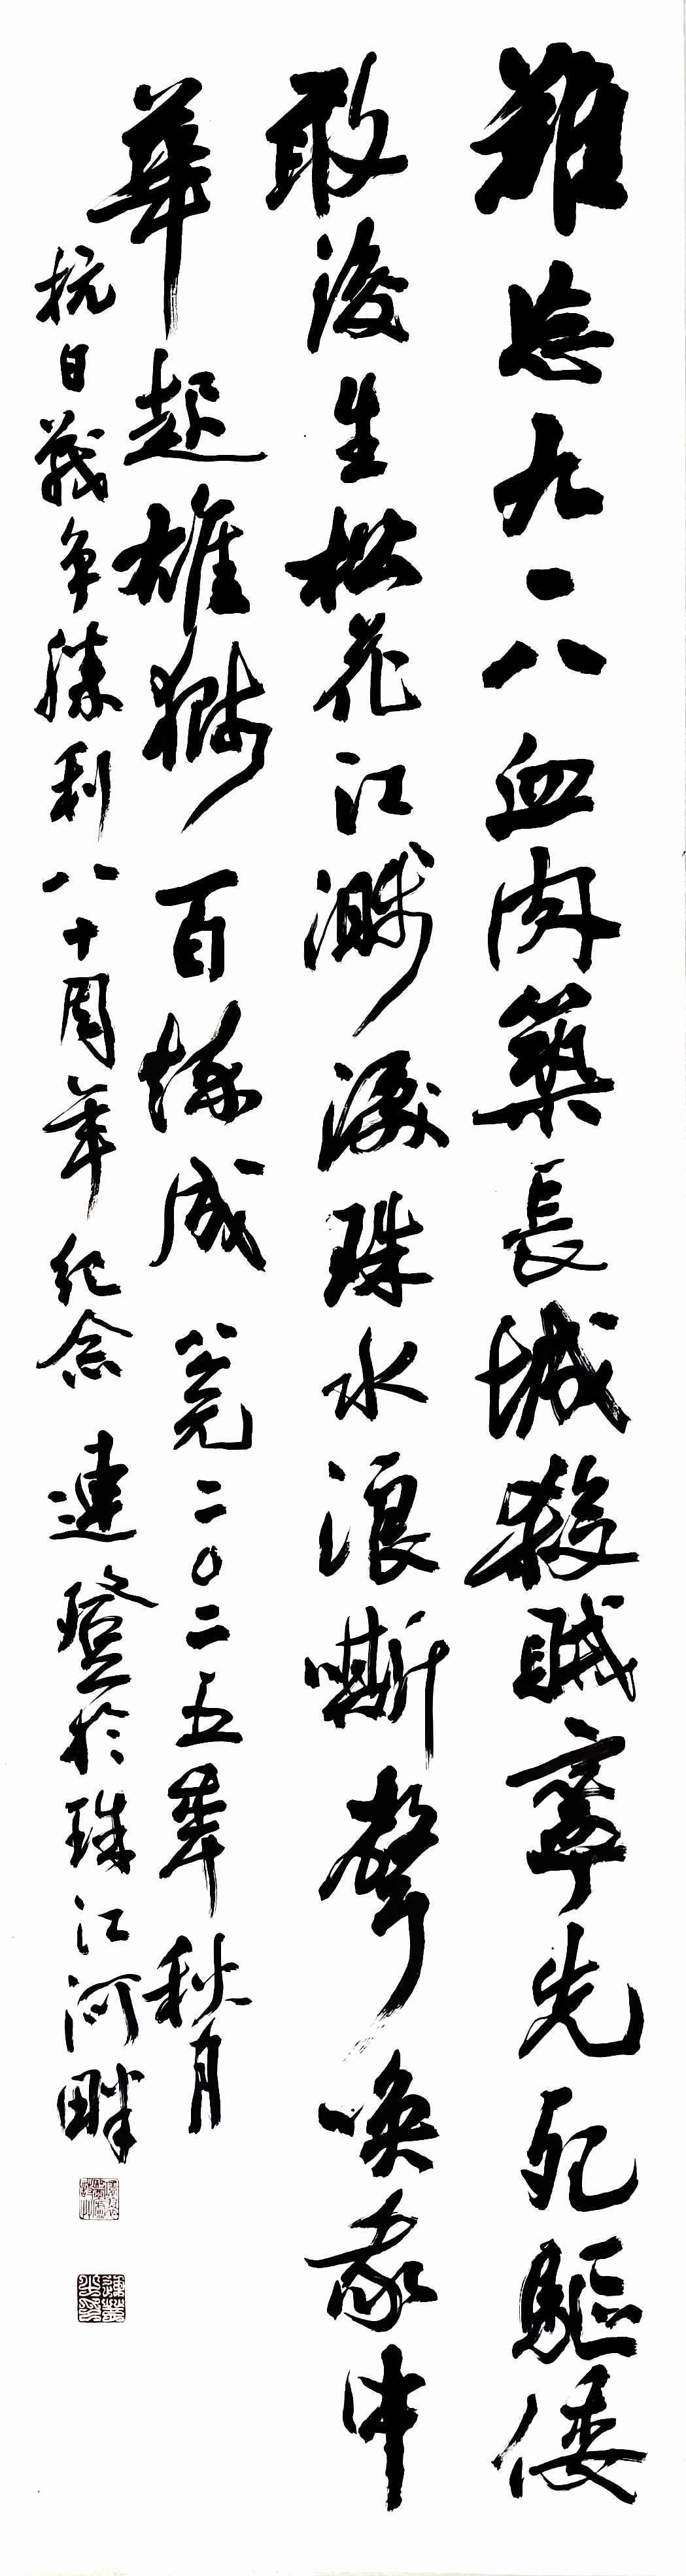 難忘九一八血肉築長城殺賊寧先死驅倭
敢後生松花江濺淚珠水浪嘶聲喚我中
華起雄獅百煉成 公元二〇二五年秋月
抗日戰爭勝利八十周年紀念 連登於珠江河畔